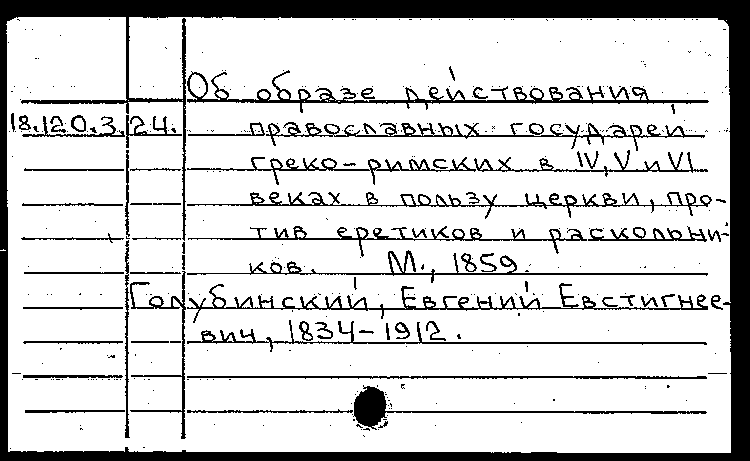 Об образе действования
18.120.3.24. православных государей
греко-римских в IV, V и VI
веках в пользу церкви, про-
тив еретиков и раскольни-
ков. М., 1859.
Голубинский, Евгений Евстигнее-
вич, 1834-1912.